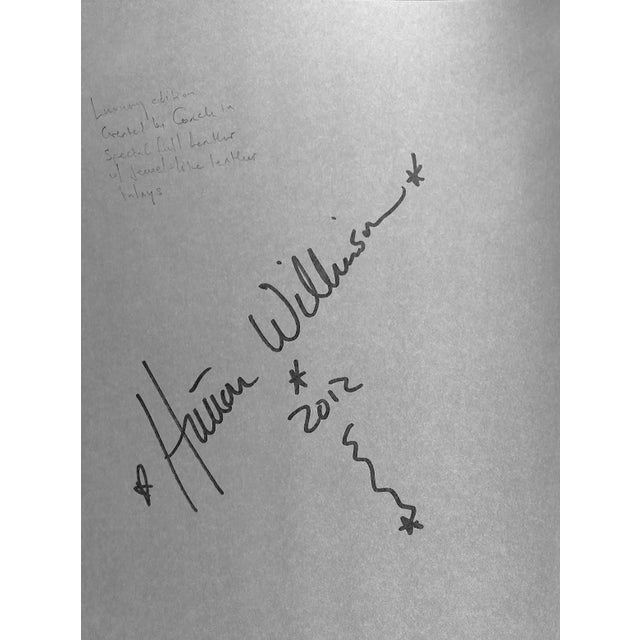 Luxury edition
Created by Coach in
Special full leather
w/ jewel-like leather
inlays
Hutton Wilkinson
2012